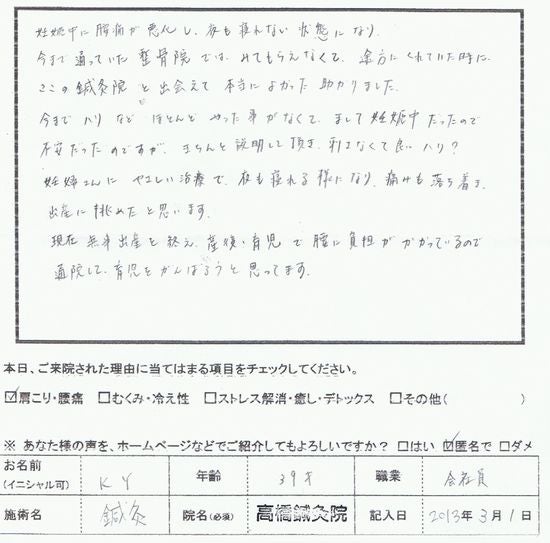 妊娠中に腰痛が悪化し、夜も寝れない状態になり、
今まで通っていた整骨院では、みてもらえなくて、途方にくれていた時に
ここの鍼灸院と出会えて本当によかった 助かりました。
今までハリなどほとんどやった事がなくて、まして妊娠中だったので
不安だったのですが、きちんと説明して頂き、刺さなくて良いハリ?
妊婦さんにやさしい治療で、夜も寝れる様になり、痛みも落ち着き、
出産に挑めたと思います。
現在無事出産を終え、産後・育児で腰に負担がかかっているので
通院して、育児をがんばろうと思ってます。
本日、ご来院された理由に当てはまる項目をチェックしてください。
☑肩こり・腰痛 □むくみ・冷え性 □ストレス解消・癒し・デトックス □その他( )
※ あなた様の声を、ホームページなどでご紹介してもよろしいですか? □はい ☑匿名で □ダメ
お名前 (イニシャル可) KY 年齢 39才 職業 会社員
施術名 鍼灸 院名(必須) 高橋鍼灸院 記入日 2013年3月1日